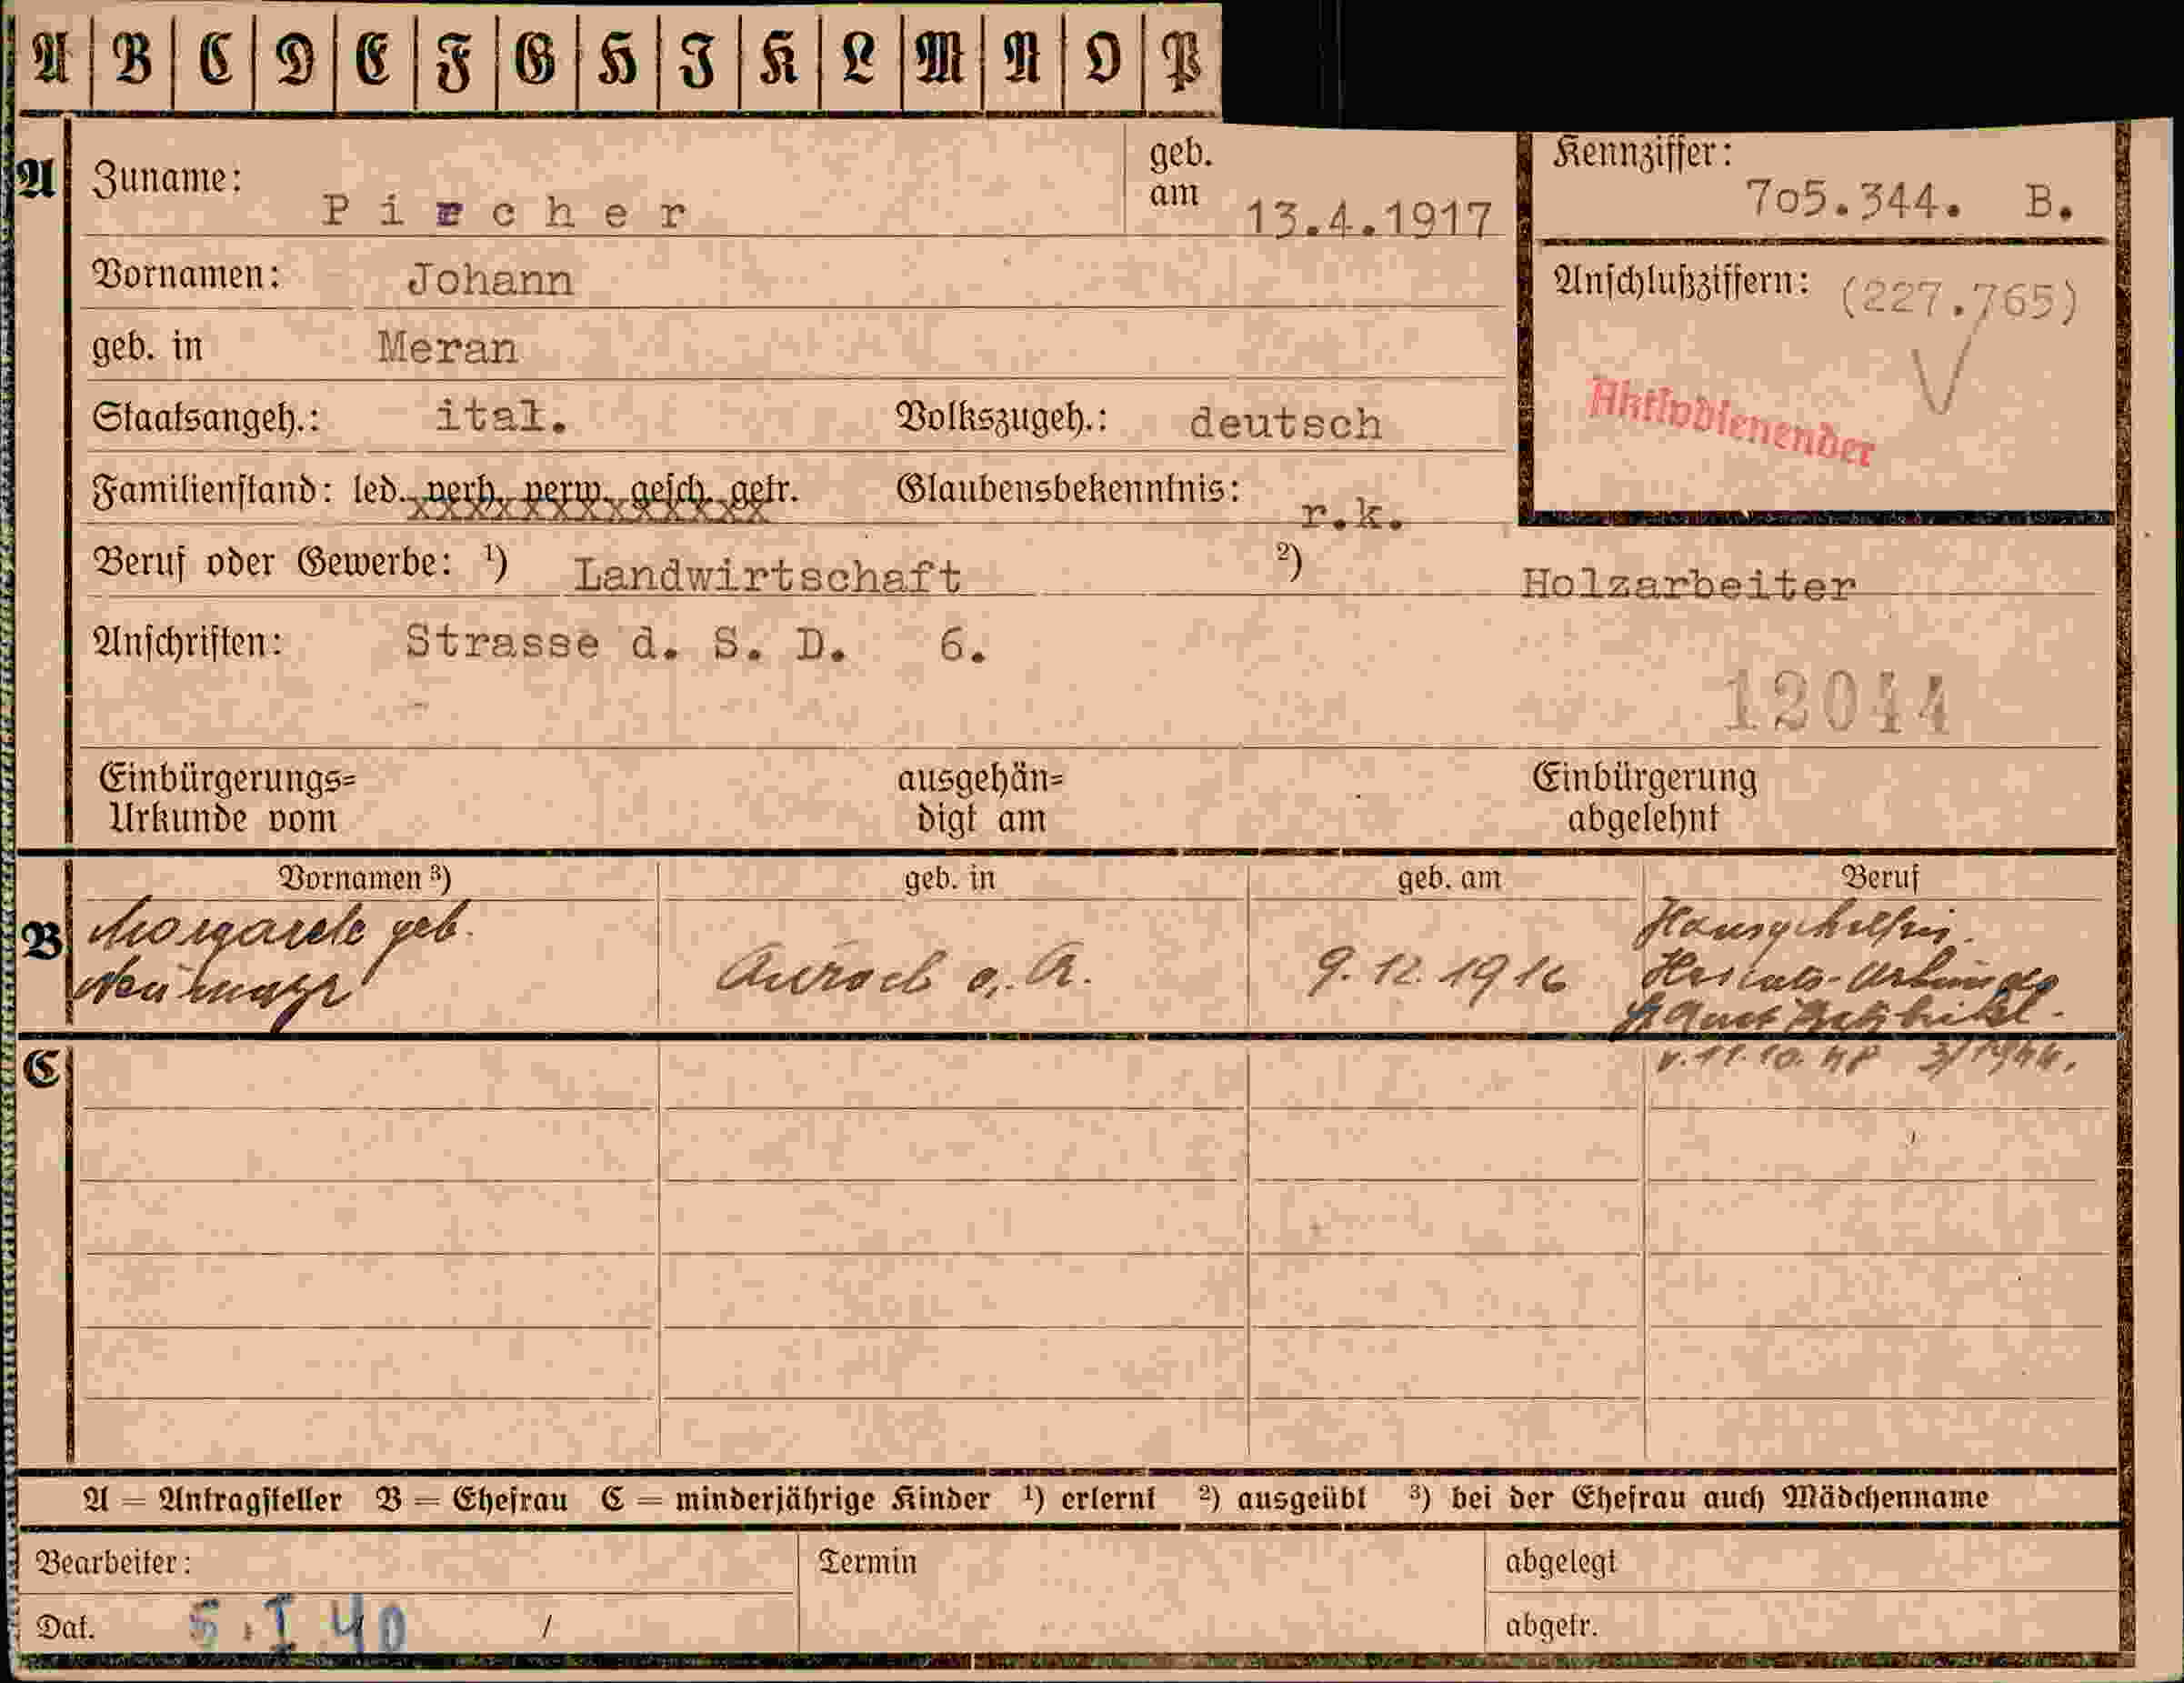 A B C D E F G H I K L M N O P
A Zuname: Pircher geb. am 13.4.1917 Kennziffer: 705.344. B.
Vornamen: Johann Anschlußziffern: (227.765)
geb. in Meran
Staatsangeh.: ital. Volkszugeh.: deutsch Aktivdienender
Familienstand: led. verh. verw. gesch. getr. Glaubensbekenntnis: r.k.
Beruf oder Gewerbe: ¹) Landwirtschaft ²) Holzarbeiter
Anschriften: Strasse d. S. D. 6.
12044
Einbürgerungs= ausgehän= Einbürgerung
Urkunde vom digt am abgelehnt
Vornamen ³) geb. in geb. am Beruf
B Margarete geb. Hausgehilfin.
Neumayr Aurach 9.12.1916 Heirats-Urkunde
v. 11.10.48 3/1944.
C
A = Antragsteller B = Ehefrau C = minderjährige Kinder ¹) erlernt ²) ausgeübt ³) bei der Ehefrau auch Mädchenname
Bearbeiter: Termin abgelegt
Dat. 5. I. 40 / abgetr.